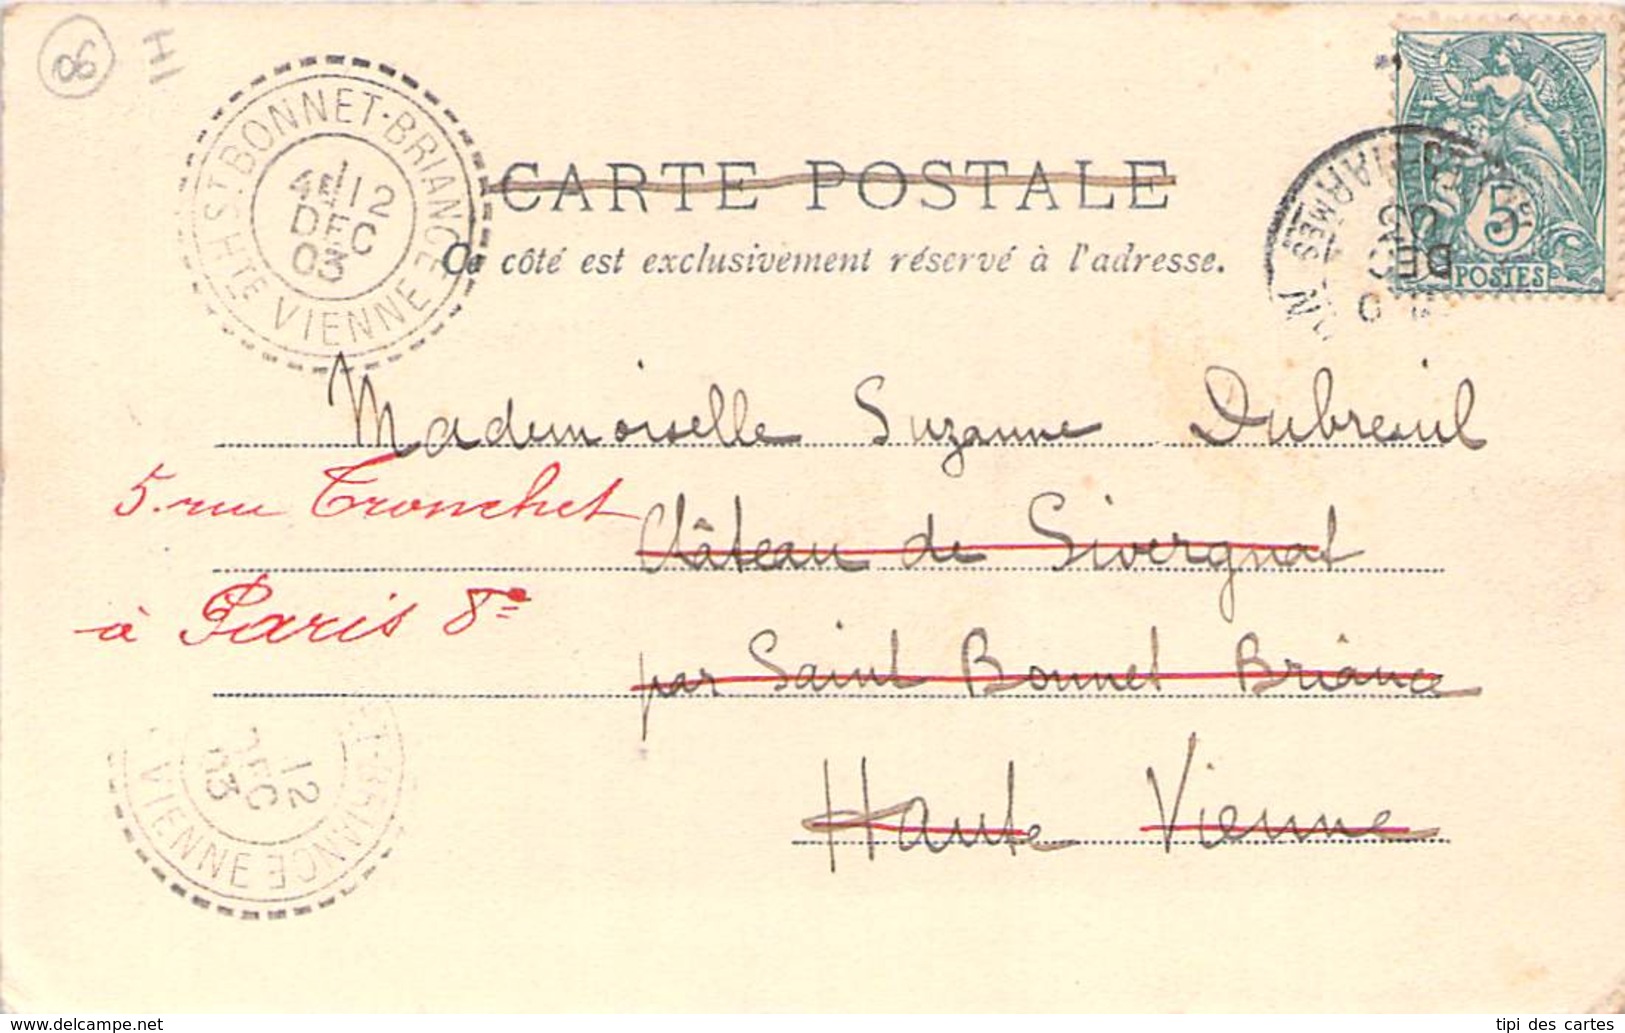 08
IH
ST. BONNET-BRIANCE
12
DEC
03
HTE VIENNE
CARTE POSTALE
Ce côté est exclusivement réservé à l'adresse.
5
POSTES
DEC
MARMES
Mademoiselle Suzanne Dubreuil
5. rue Tronchet
Château de Sivergnat
à Paris 8e
par Saint Bonnet Briance
Haute Vienne
12
DEC
03
T-BRIANCE
VIENNE
tipi des cartes
www.delcampe.net